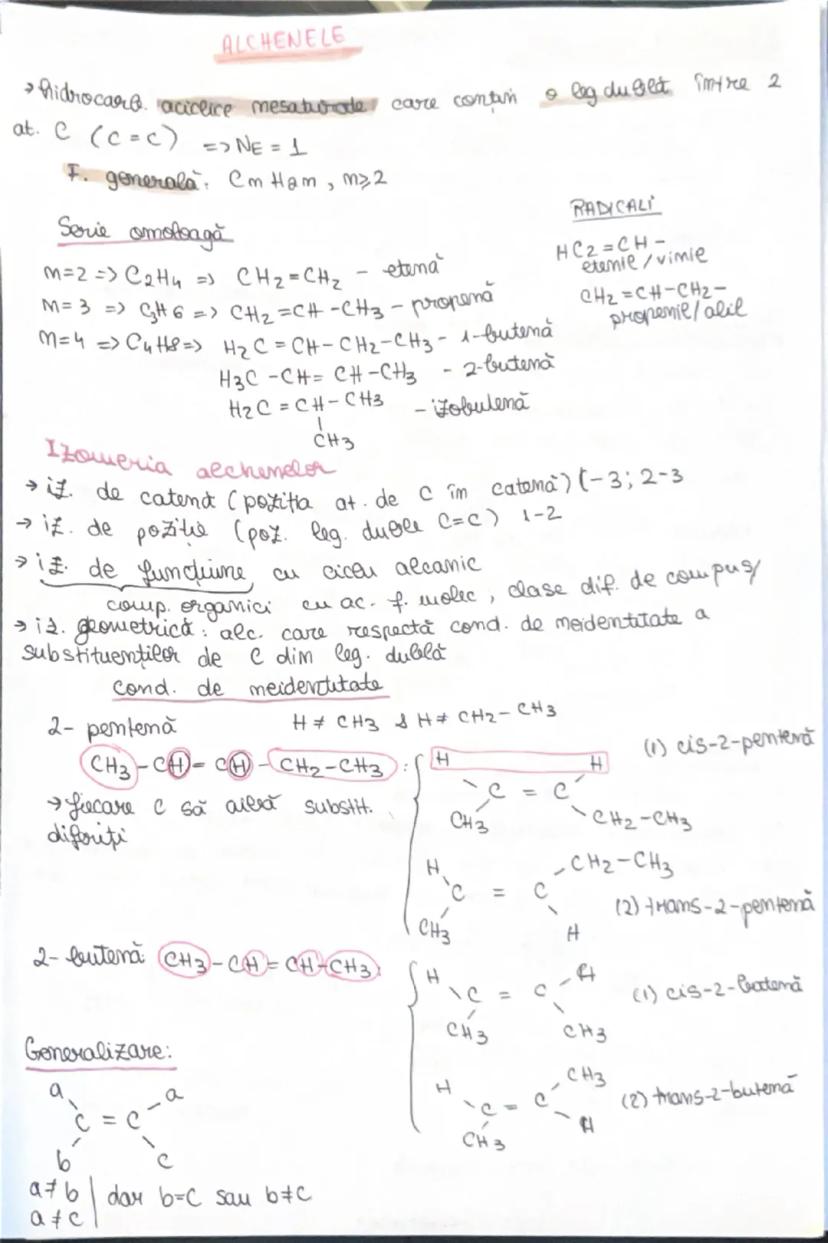 ALCHENELE
→ hidrocarb. aciclice nesaturate care conțin o leg dublă între 2
at. C (C=C) => NE = 1
F. generală: CnH2n, n≥2
Serie omoloagă
n=2 => C2H4 => CH2=CH2 - etenă
n=3 => C3H6 => CH2=CH-CH3 - propenă
n=4 => C4H8 => H2C=CH-CH2-CH3 - 1-butenă
H3C-CH=CH-CH3 - 2-butenă
H2C=CH-CH3 - izobutenă
|
CH3
RADICALI
HC2=CH-
etenil/vinil
CH2=CH-CH2-
propenil/alil
Izomeria alchenelor
→ iz. de catenă (poziția at. de C în catenă) (-3; 2-3
→ iz. de poziție (poz. leg. duble C=C) 1-2
→ iz. de funcțiune cu ciclu alcanic
comp. organici cu ac. f. molec, clase dif. de compuși
→ iz. geometrică: alc. care respectă cond. de neidentitate a
substituenților de C din leg. dublă
cond. de neidentitate
2-pentenă H≠CH3 & H≠CH2-CH3
CH3-CH=CH-CH2-CH3:
→ fiecare C să aibă substit.
diferiți
H H (1) cis-2-pentenă
C = C
CH3 CH2-CH3
H CH2-CH3
C = C
CH3 H (2) trans-2-pentenă
2-butenă CH3-CH=CH-CH3:
H H
C = C (1) cis-2-butenă
CH3 CH3
H CH3
C = C (2) trans-2-butenă
CH3 H
Generalizare:
a a
C = C
b c
a≠b | dar b=c sau b≠c
a≠c |